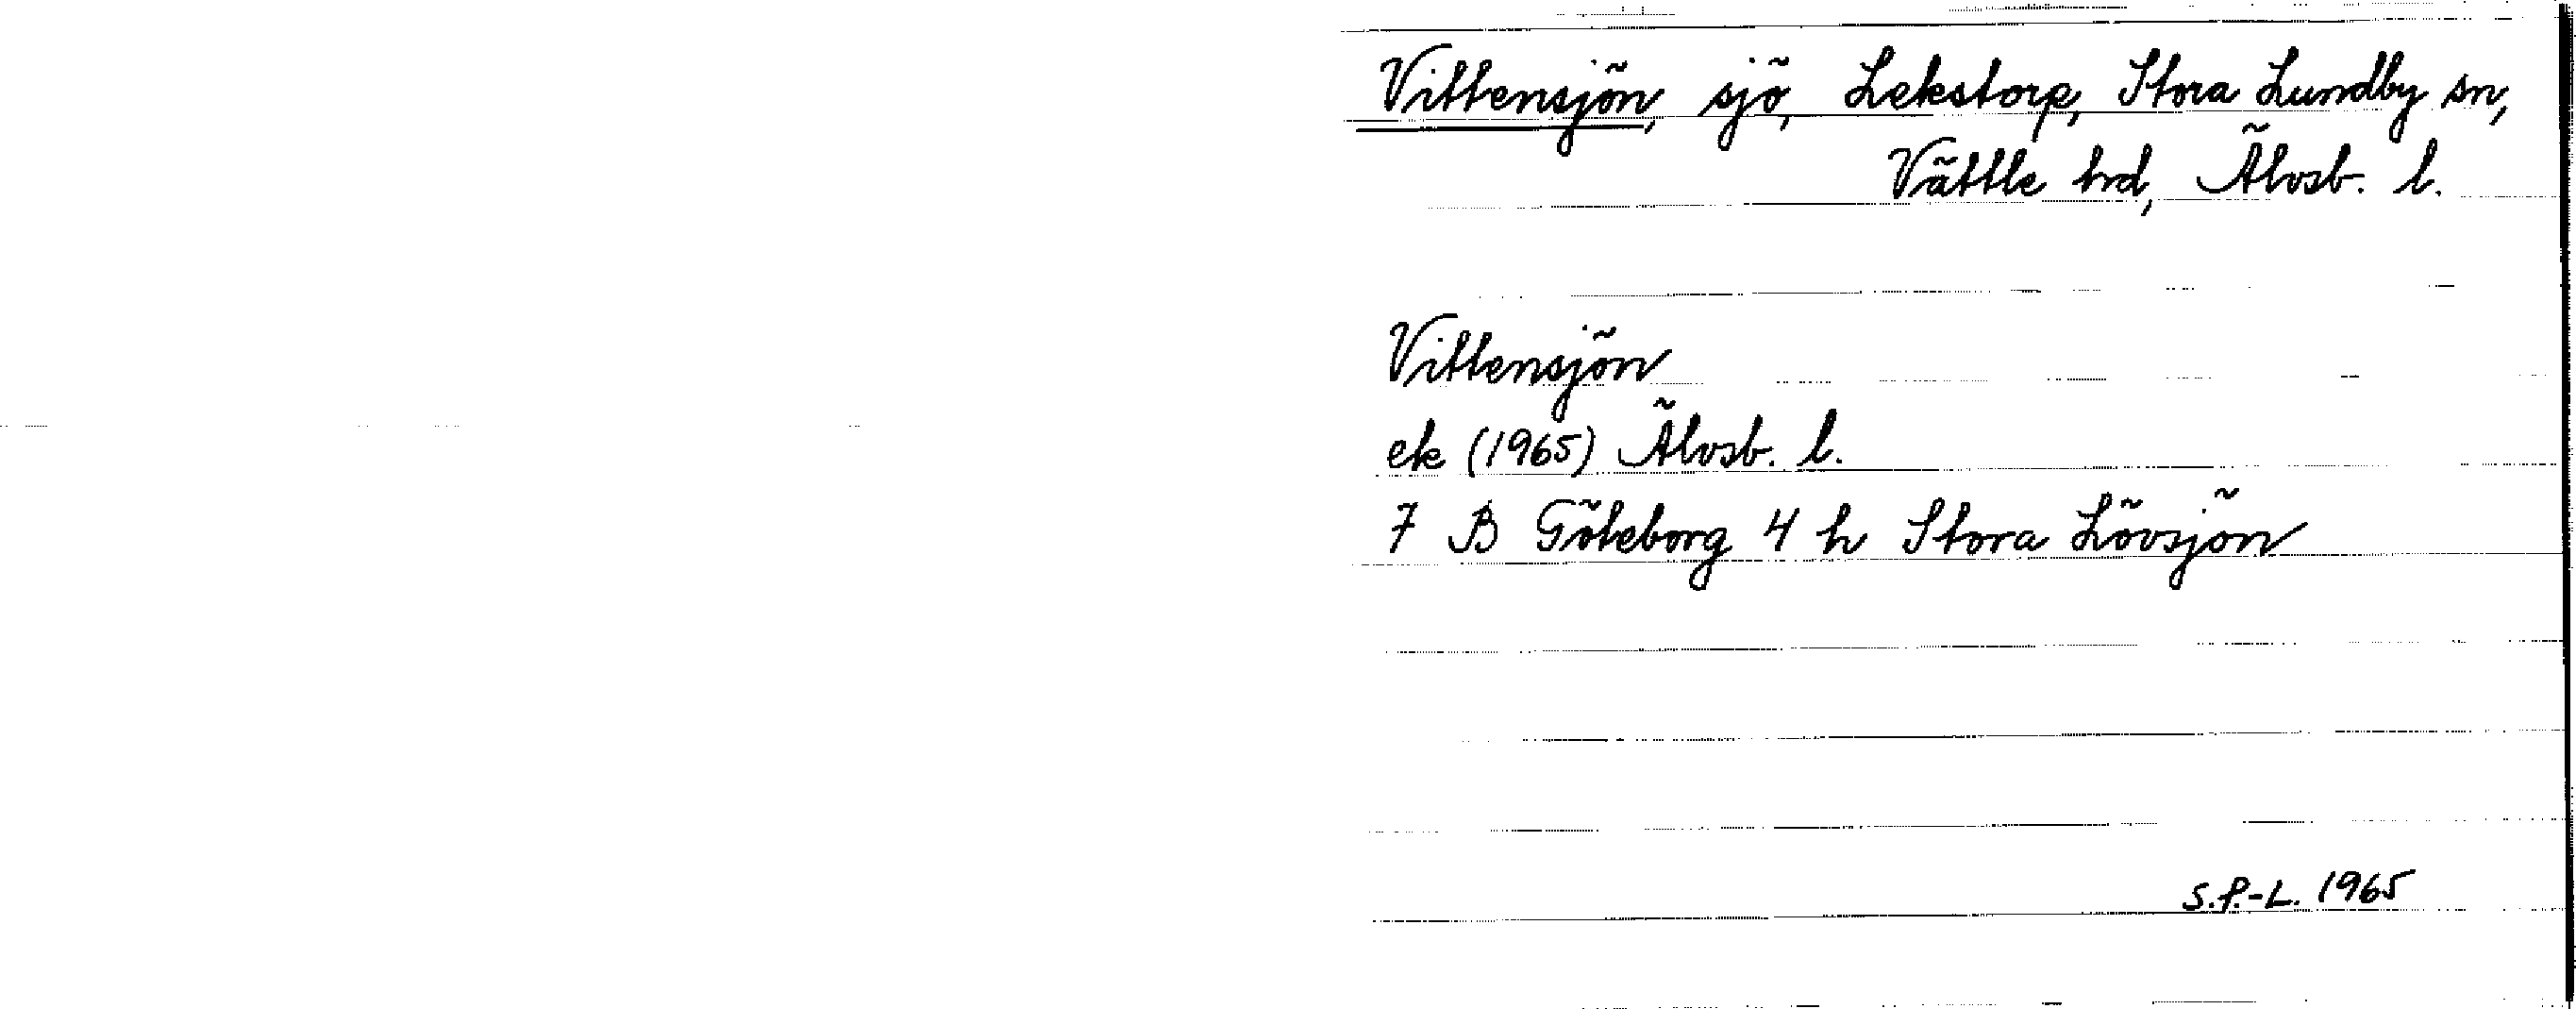 Vittensjön, sjö, Lekstorp, Stora Lundby sn,
Vättle hd, Älvsb. l.
Vittensjön
ek (1965) Älvsb. l.
7 B Göteborg 4 h Stora Lövsjön
S.P.-L. 1965